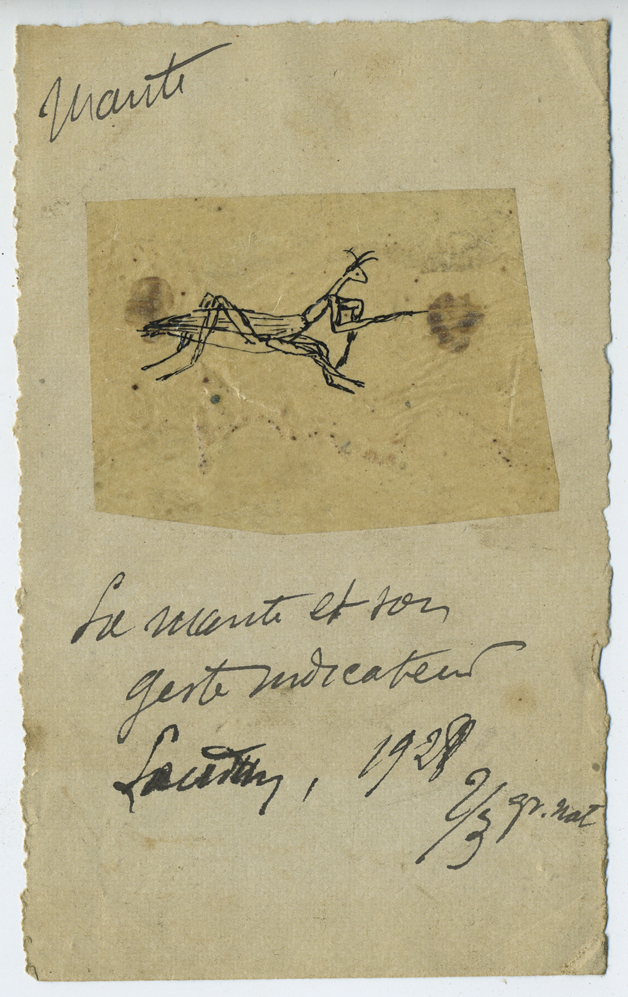 Mante
La mante et son
geste indicateur
Soudan, 1928
2/3 gr. nat